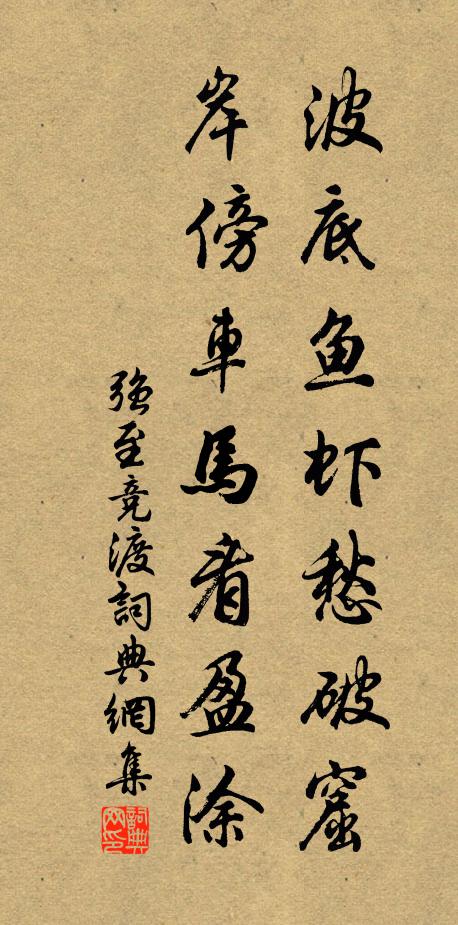 波底鱼虾愁破窟
岸傍車馬看盈涂
强至竞渡詞典網集
詞典网印